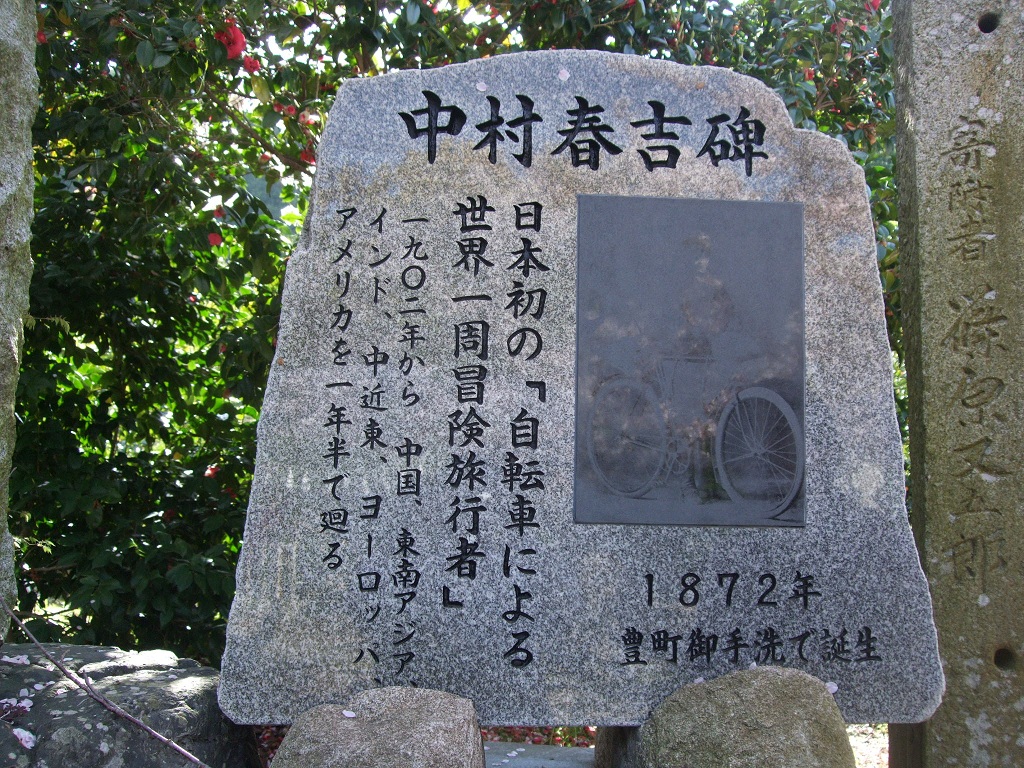 中村春吉碑
日本初の「自転車による
世界一周冒険旅行者」
一九〇二年から 中国、東南アジア、
インド、中近東、ヨーロッパ、
アメリカを一年半で廻る
1872年
豊町御手洗で誕生
寄附者 篠原又五郎